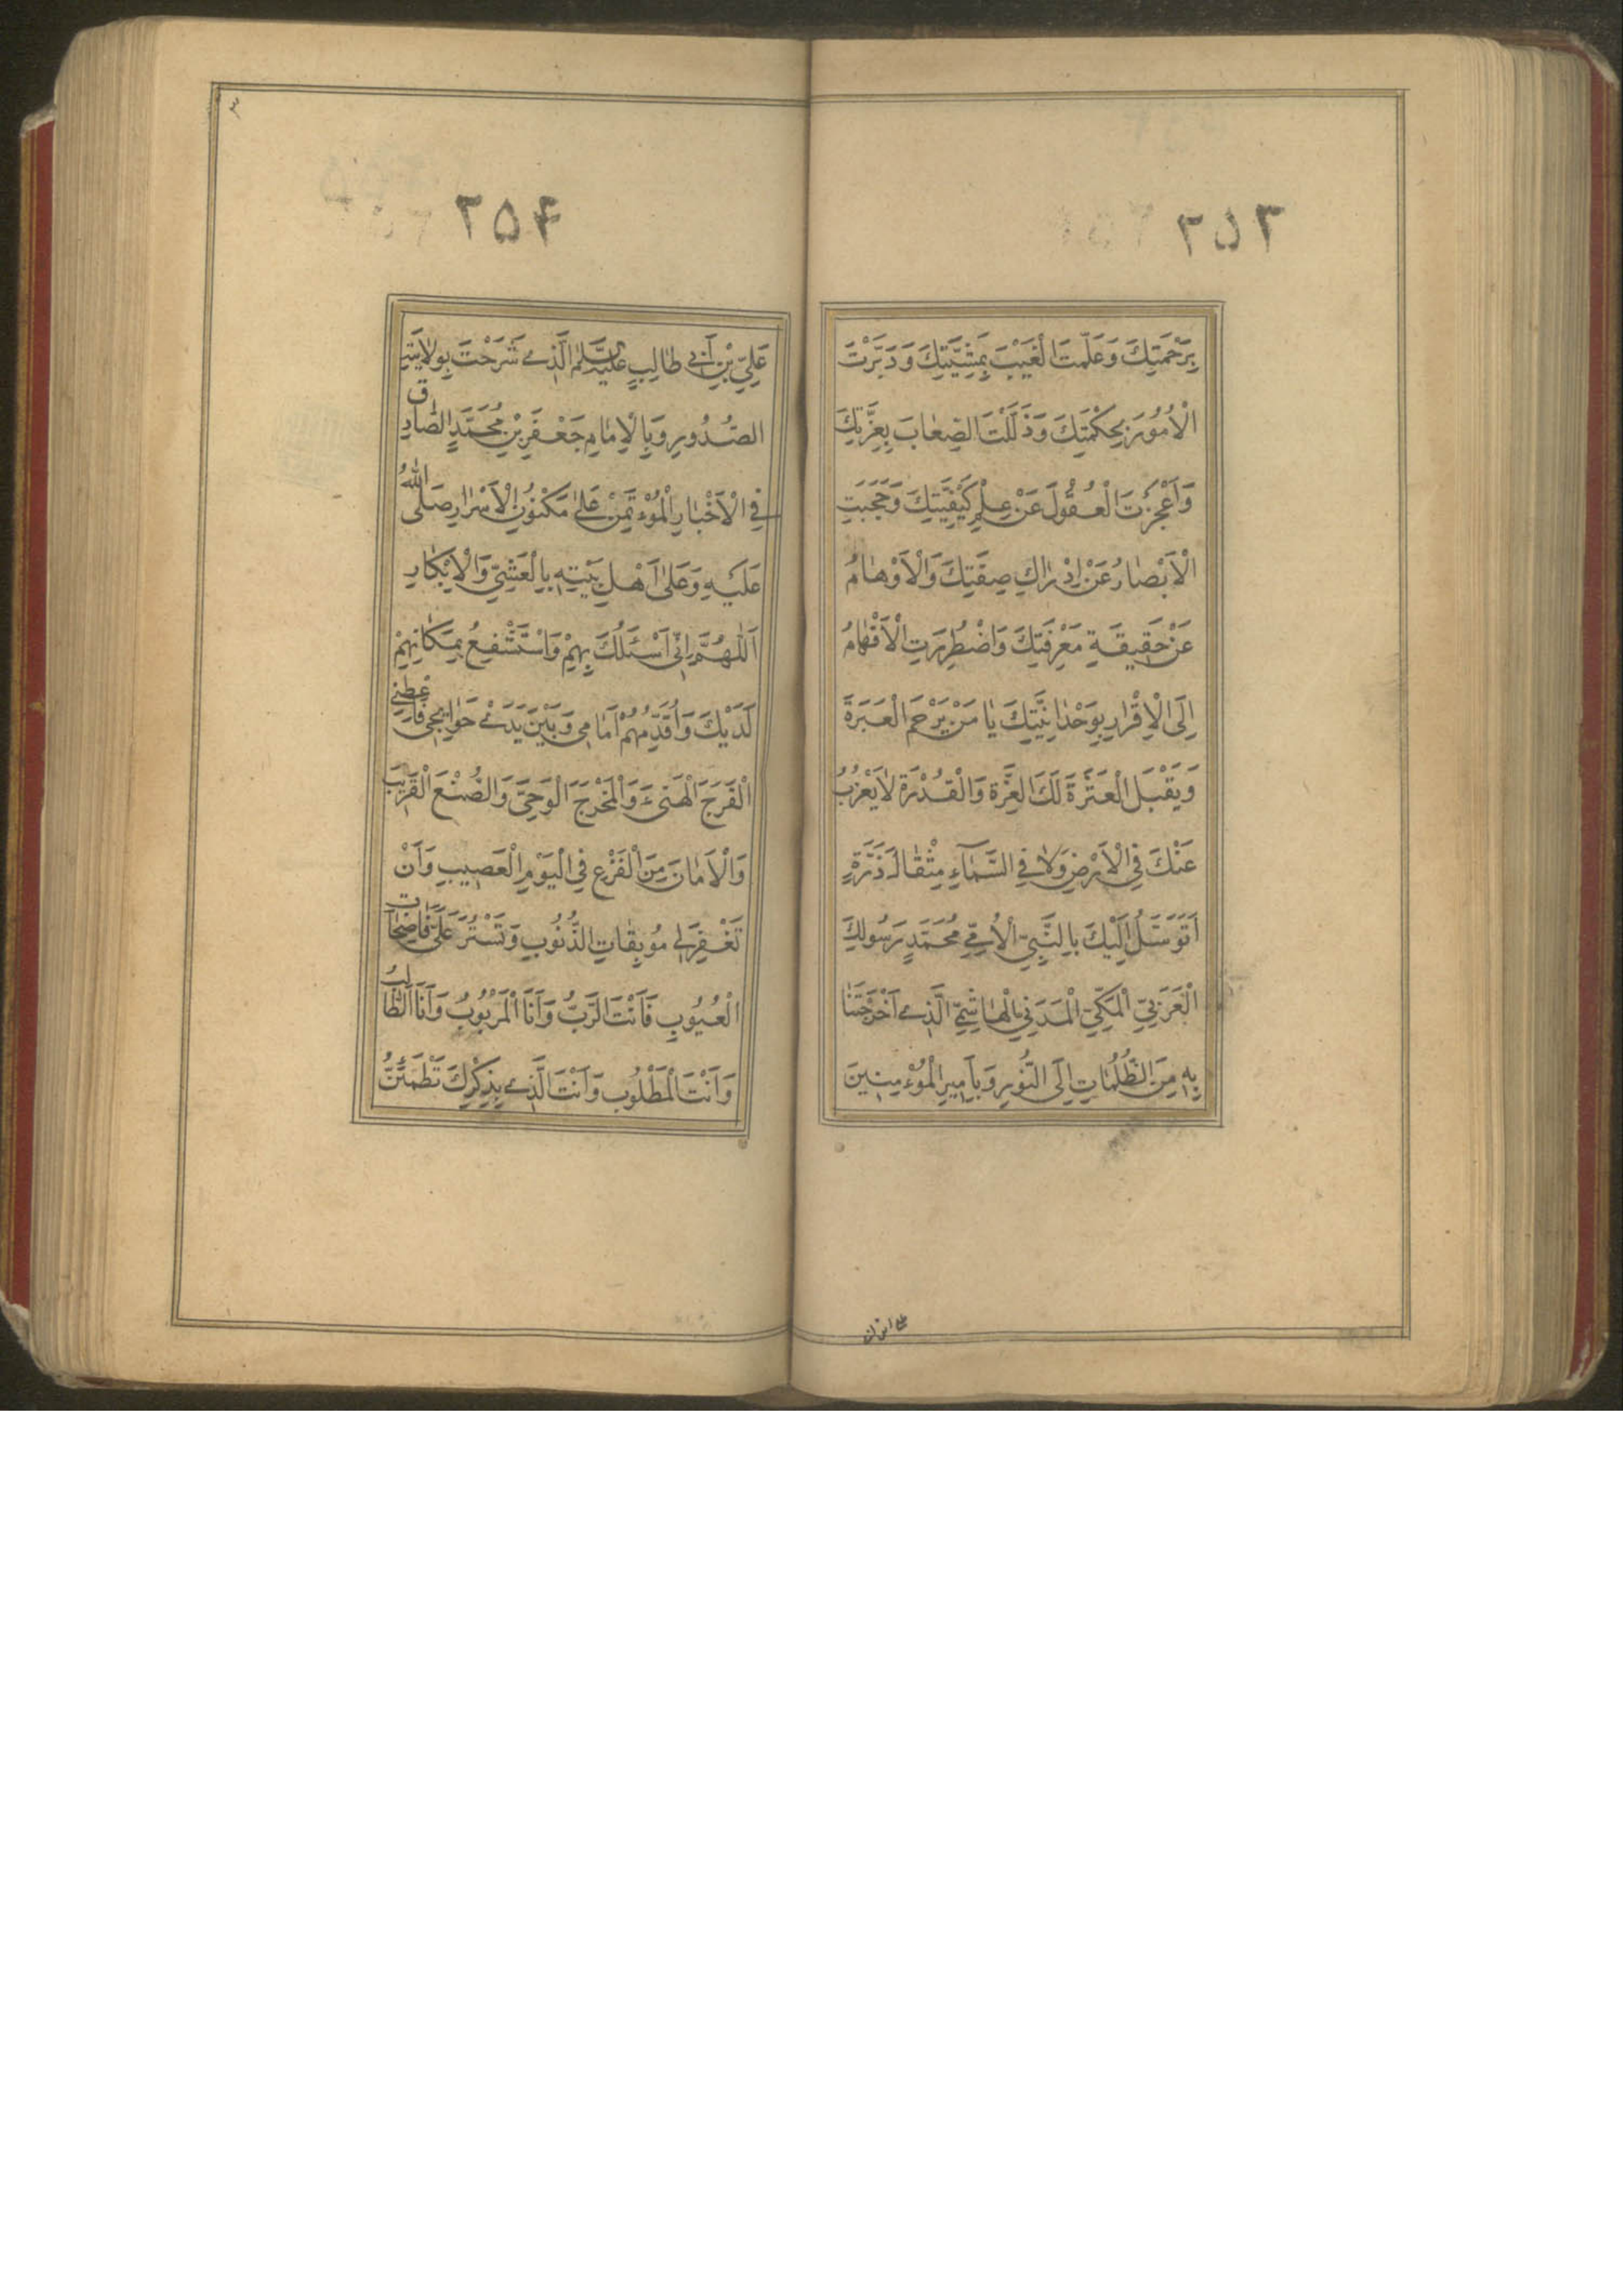 ۲۵۳
بِرَحْمَتِكَ وَعَلِمْتَ الْغَيْبَ بِمَشِيَّتِكَ وَدَبَّرْتَ
الْاُمُورَ بِحِكْمَتِكَ وَذَلَّلْتَ الصِّعٰابَ بِعِزَّتِكَ
وَاَعْجَزْتَ الْعُقُولَ عَنْ عِلْمِ كَيْفِيَّتِكَ وَحَجَبْتَ
الْاَبْصٰارَ عَنْ اِدْرٰاكِ صِفَتِكَ وَالْاَوْهٰامُ
عَنْ حَقِيقَةِ مَعْرِفَتِكَ وَاضْطُرِرَتِ الْاَفْهٰامُ
اِلَى الْاِقْرٰارِ بِوَحْدٰانِيَّتِكَ يٰا مَنْ يَرْحَمُ الْعَبَرَةَ
وَيَقْبَلُ الْعَثَرَةَ لَكَ الْعِزَّةُ وَالْقُدْرَةُ لٰا يَعْزُبُ
عَنْكَ فِي الْاَرْضِ وَلٰا فِي السَّمٰآءِ مِثْقٰالَ ذَرَّةٍ
اَتَوَسَّلُ اِلَيْكَ بِالنَّبِيِّ الْاُمِّيِّ مُحَمَّدٍ رَسُولِكَ
الْعَرَبِيِّ الْمَكِّيِّ الْمَدَنِيِّ الْهٰاشِمِيِّ الَّذِي اَخْرَجْتَنٰا
بِهِ مِنَ الظُّلُمٰاتِ اِلَى النُّورِ وَبِاَمِيرِ الْمُؤْمِنِينَ
۲۵۴
عَلِيِّ بْنِ اَبِي طٰالِبٍ عَلَيْهِ السَّلٰامُ الَّذِي شَرَحْتَ بِوِلٰايَتِهِ
الصُّدُورَ وَبِالْاِمٰامِ جَعْفَرِ بْنِ مُحَمَّدٍ الصّٰادِقِ
فِي الْاَخْبٰارِ الْمُؤْتَمَنِ عَلىٰ مَكْنُونِ الْاَسْرٰارِ صَلَّى اللّٰهُ
عَلَيْهِ وَعَلىٰ اَهْلِ بَيْتِهِ بِالْعَشِيِّ وَالْاِبْكٰارِ
اَللّٰهُمَّ اِنِّي اَسْئَلُكَ بِهِمْ وَاَسْتَشْفِعُ بِمَكٰانِهِمْ
لَدَيْكَ وَاُقَدِّمُهُمْ اَمٰامِي وَبَيْنَ يَدَيْ حَوٰائِجِي فَاَعْطِنِي
الْفَرَجَ الْهَنِيءَ وَالْمَخْرَجَ الْوَحِيَّ وَالصُّنْعَ الْقَرِيبَ
وَالْاَمٰانَ مِنَ الْفَزَعِ فِي الْيَوْمِ الْعَصِيبِ وَاَنْ
تَغْفِرَ لِي مُوبِقٰاتِ الذُّنُوبِ وَتَسْتُرَ عَلَيَّ فٰاضِحٰاتِ
الْعُيُوبِ فَاَنْتَ الرَّبُّ وَاَنَا الْمَرْبُوبُ وَاَنَا الطّٰالِبُ
وَاَنْتَ الْمَطْلُوبُ وَاَنْتَ الَّذِي بِذِكْرِكَ تَطْمَئِنُّ